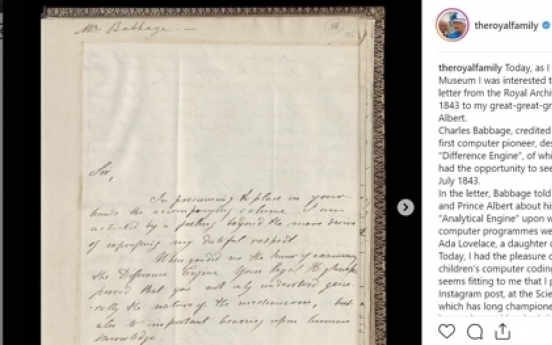 Mr Babbage.
Sir,
In presuming to place in your
hands the accompanying volume I am
actuated by a feeling beyond the mere desire
of expressing my dutiful respect.
When you did me the honor of examining
the Difference Engine Your Royal Highness
proved that you not only understood gene-
rally the nature of the mechanism, but
also its important bearing upon human
knowledge.
theroyalfamily
theroyalfamily Today, as I
Museum I was interested t
letter from the Royal Archi
1843 to my great-great-gr
Albert.
Charles Babbage, credited
first computer pioneer, des
"Difference Engine", of whi
had the opportunity to see
July 1843.
In the letter, Babbage told
and Prince Albert about his
"Analytical Engine" upon w
computer programmes we
Ada Lovelace, a daughter o
Today, I had the pleasure o
children's computer coding
seems fitting to me that I p
Instagram post, at the Scie
which has long champione